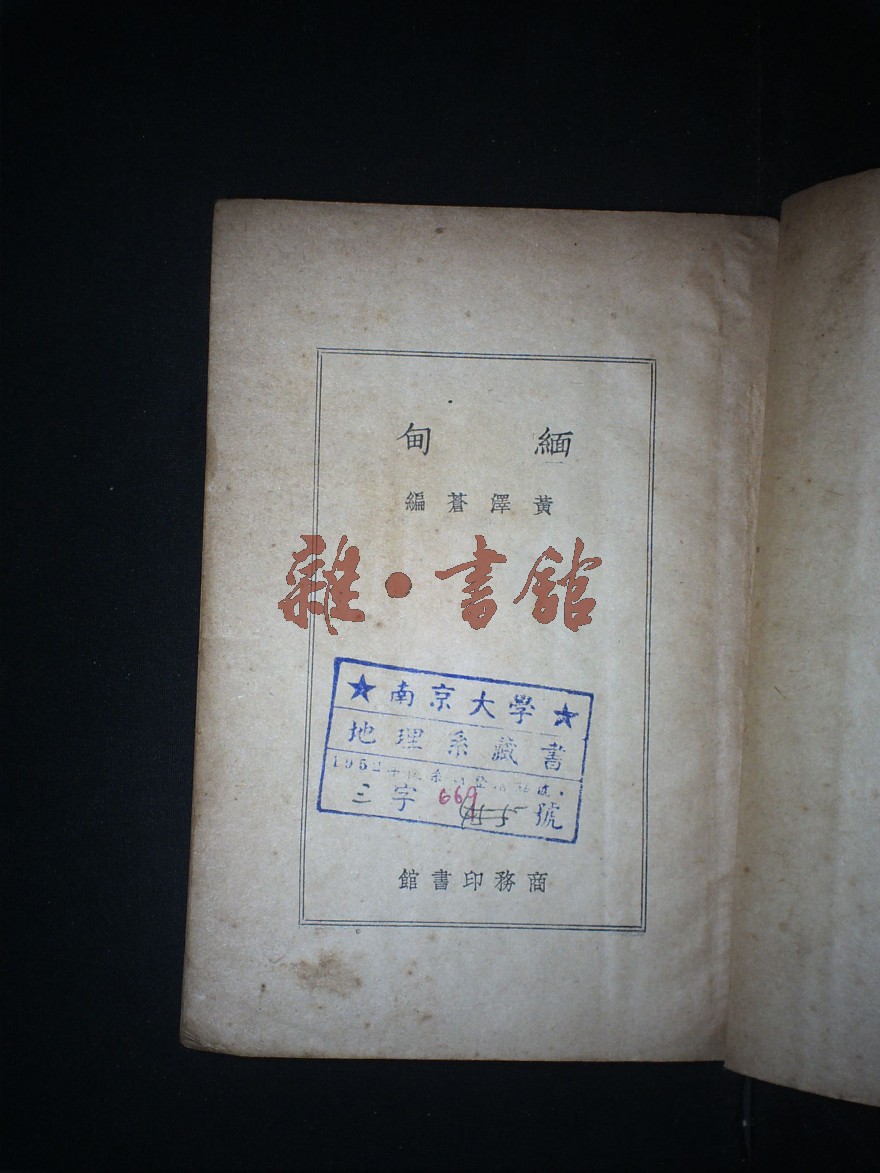 緬甸
黃澤蒼編
雜·書館
★南京大學★
地理系藏書
1952年
三字669號
商務印書館